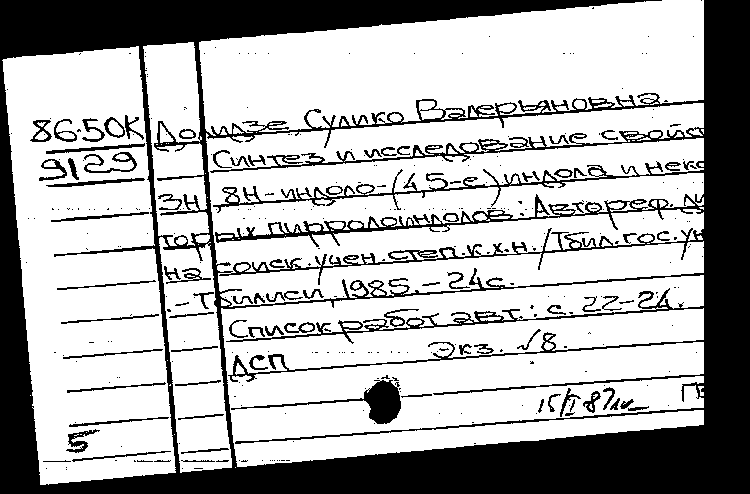 86-50К Долидзе, Сулико Валерьяновна.
9129 Синтез и исследование свойст
3Н, 8Н-индоло-(4,5-е) индола и неко
торых пирролоиндолов: Автореф. ди
на соиск. учен. степ. к.х.н. /Тбил. гос. ун
.- Тбилиси, 1985.- 24с.
Список работ авт.: с. 22-24.
ДСП Экз. √8.
15/I-87
5